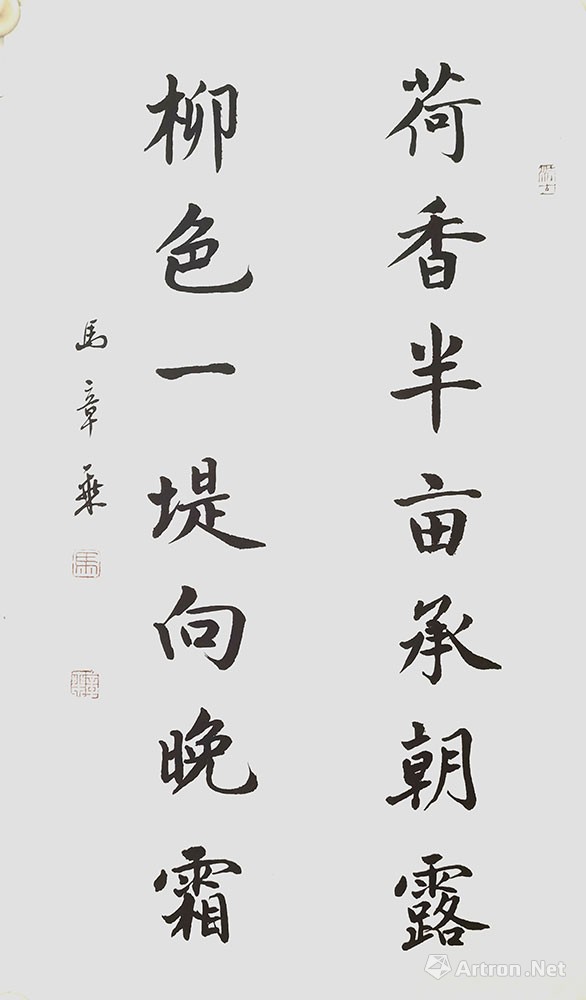 荷香半亩承朝露
柳色一堤向晚霜
馬章乘
Artron.Net